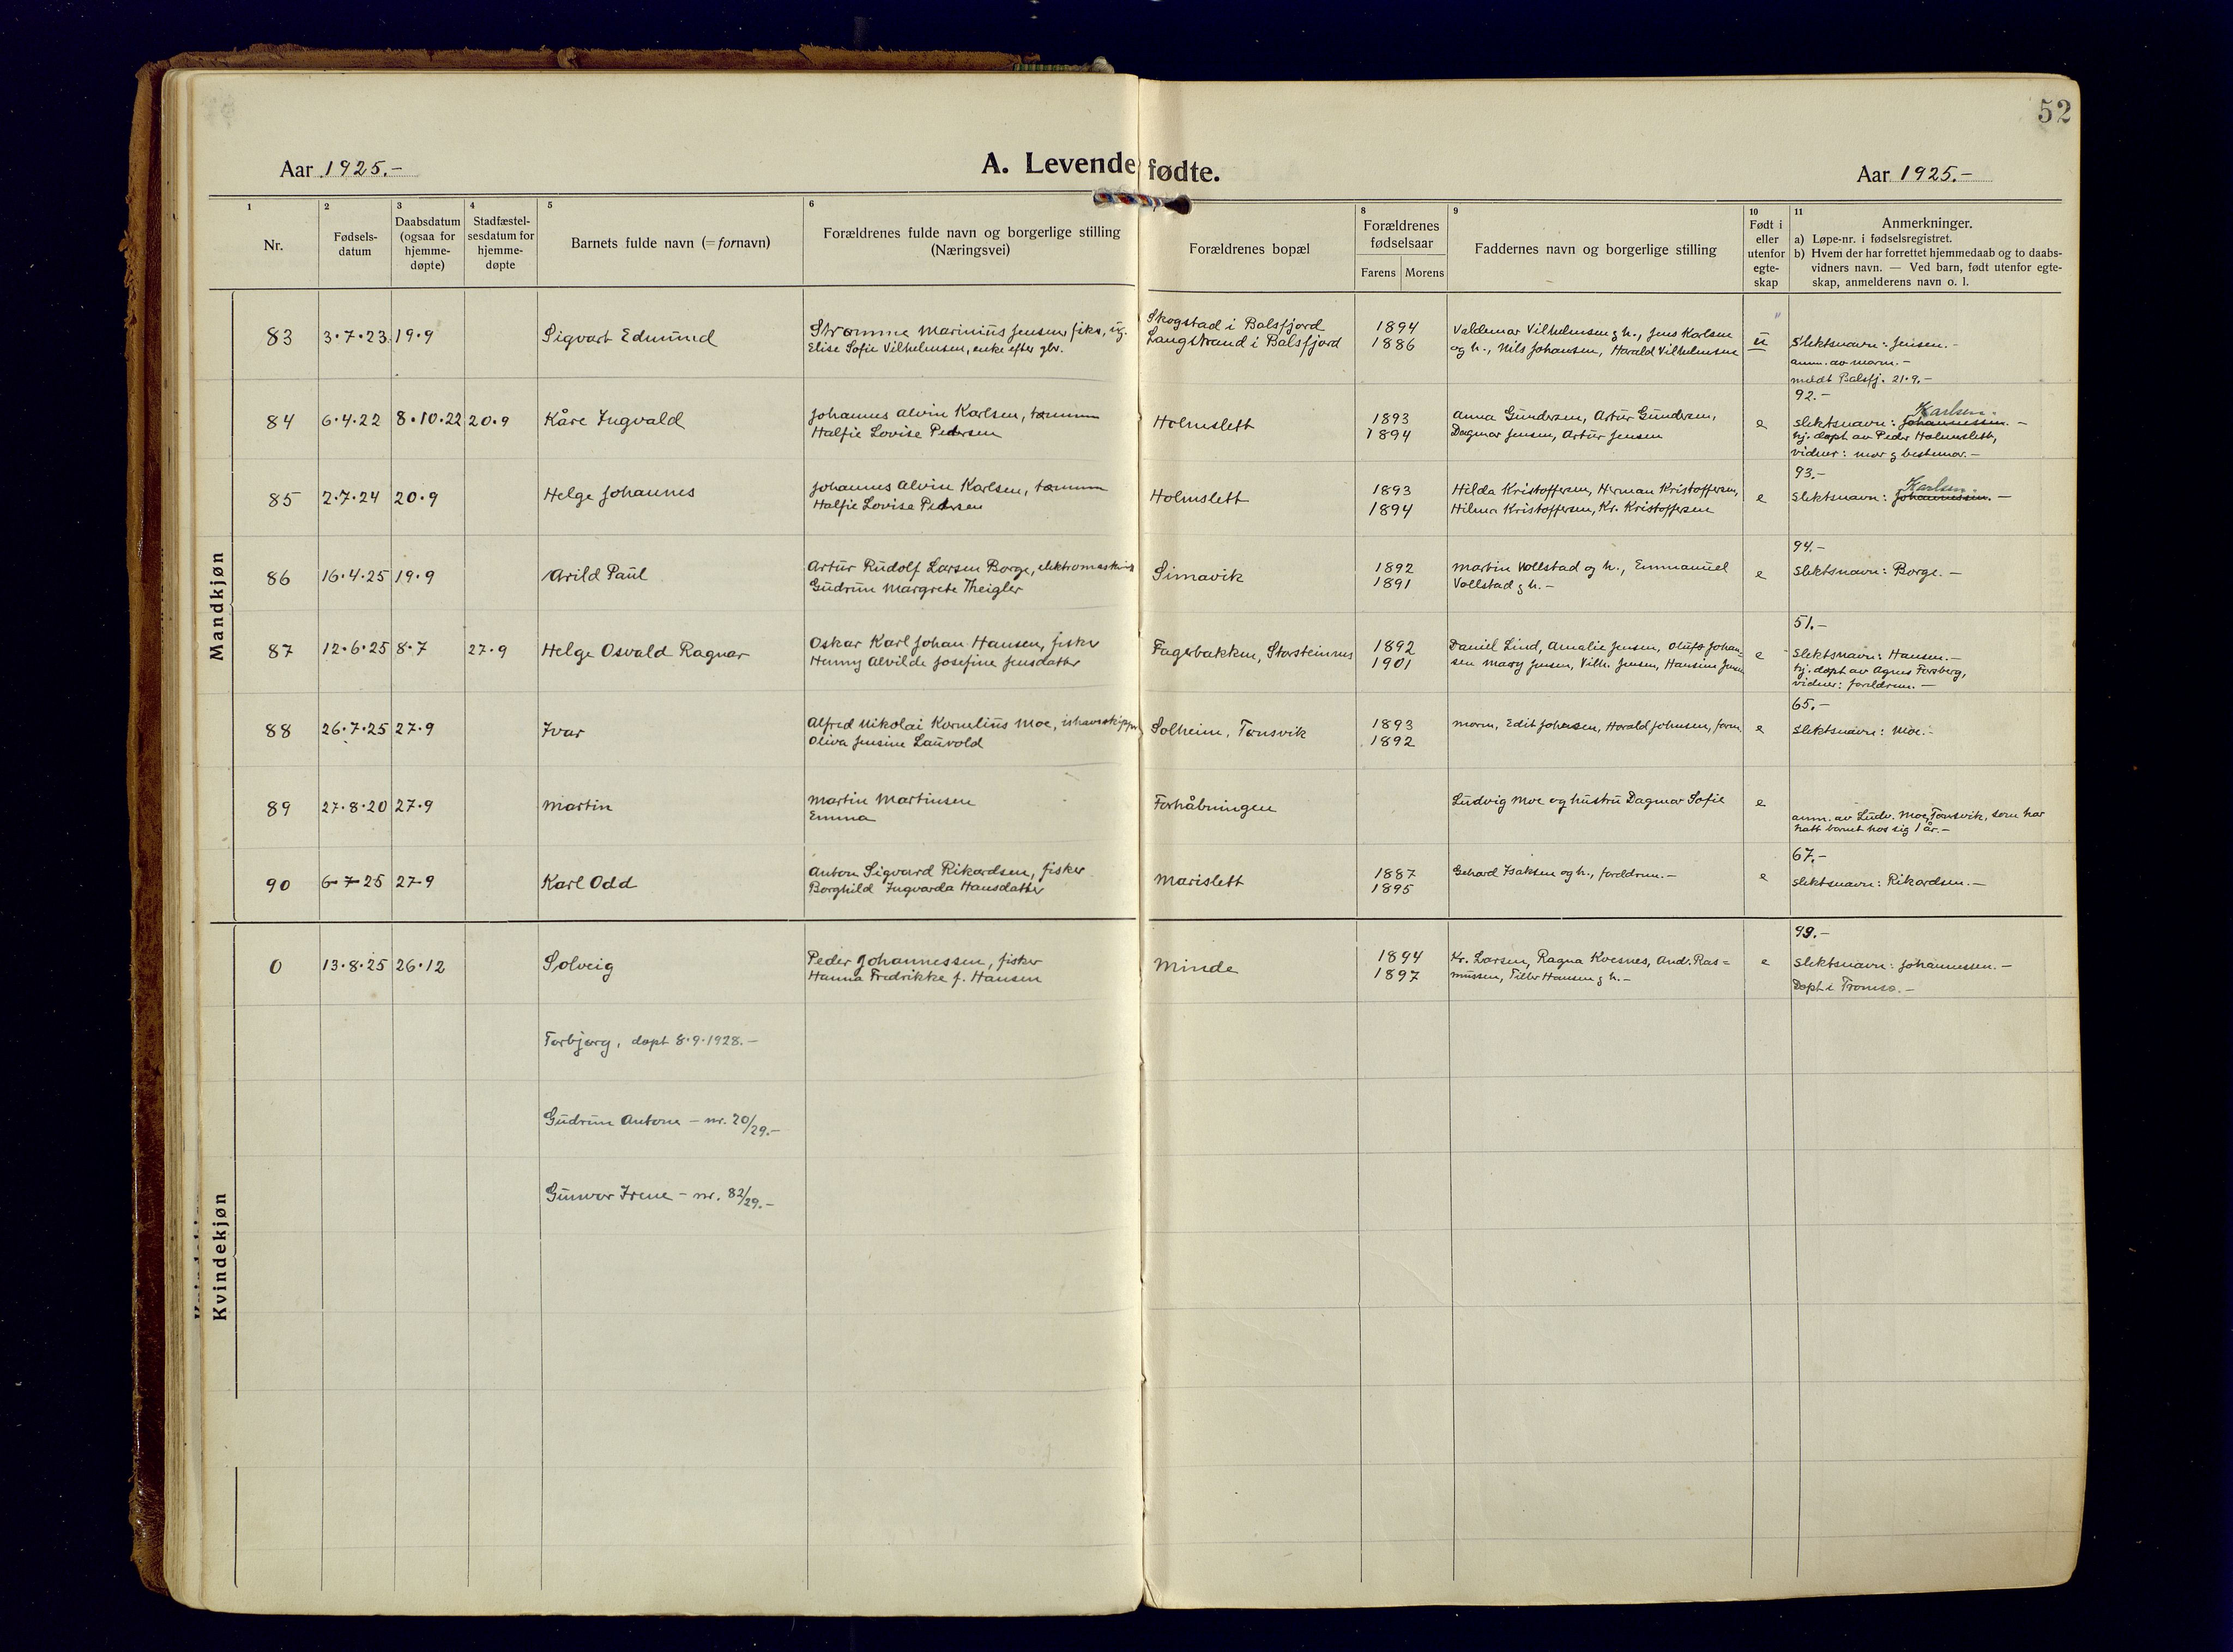 52
Aar 1925.-
A. Levende fødte.
Aar 1925.-
1
Nr.
2
Fødsels-
datum
3
Daabsdatum
(ogsaa for
hjemme-
døpte)
4
Stadfæstel-
sesdatum for
hjemme-
døpte
5
Barnets fulde navn (= fornavn)
6
Forældrenes fulde navn og borgerlige stilling
(Næringsvei)
Forældrenes bopæl
8
Forældrenes
fødselsaar
Farens
Morens
9
Faddernes navn og borgerlige stilling
10
Født i
eller
utenfor
egte-
skap
11
Anmerkninger.
a) Løpe-nr. i fødselsregistret.
b) Hvem der har forrettet hjemmedaab og to daabs-
vidners navn. — Ved barn, født utenfor egte-
skap, anmelderens navn o. l.
Mandkjøn
83
3.7.23
19.9
Sigvart Edmund
Marinius Jensen, fisker, ug.
Elise Sofie Vilhelmsen, enke efter gbr.
Skogstad i Balsfjord
Langstrand i Balsfjord
1894
1886
Valdemar Vilhelmsen g h., Jens Karlsen
og h., Nils Johansen, Harald Vilhelmsen
u
Slektsnavn: Jensen.-
anm. av moren.-
meldt Balsfj. 21.9.-
84
6.4.22
8.10.22
20.9
Kåre Ingvald
Johannes Alvin Karlsen, tømmm
Halfie Lovise Pedersen
Holmslett
1893
1894
Anna Gundersen, Artur Gundersen,
Dagmar Jensen, Artur Jensen
e
92.-
Karlsen.
slektsnavn: Johannessen.-
hj. døpt av Peder Holmslett,
vidner: mor g bestemor.-
85
2.7.24
20.9
Helge Johannes
Johannes Alvin Karlsen, tømmm
Halfie Lovise Pedersen
Holmslett
1893
1894
Hilda Kristoffersen, Herman Kristoffersen,
Hilma Kristoffersen, Kr. Kristoffersen
e
93.-
Karlsen.
slektsnavn: Johannessen.-
86
16.4.25
19.9
Arild Paul
Artur Rudolf Larsen Borge, elektromaskinist
Gudrun Margrete Theigler
Simavik
1892
1891
Martin Vollstad og h., Emmanuel
Vollstad g h.-
e
94.-
Slektsnavn: Borge.-
87
12.6.25
8.7
27.9
Helge Osvald Ragnar
Oskar Karl Johan Hansen, fisker
Henny Alvilde Josefine Jensdatter
Fagerbakken, Storsteinnes
1892
1901
Daniel Lind, Amalie Jensen, Oluf Johan-
sen Mary Jensen, Vilh. Jensen, Hansine Jensen
e
51.-
Slektsnavn: Hansen.-
hj. døpt av Agnes Forsberg,
vidner: foreldrene.-
88
26.7.25
27.9
Ivar
Alfred Nikolai Kornelius Moe, ishavsskipper
Oliva Jensine Lauvold
Solheim, Tønsvik
1893
1892
moren, Edit Johnsen, Harald Johnsen, faren
e
65.-
Slektsnavn: Moe.-
89
27.8.20
27.9
Martin
Martin Martinsen
Emma
Forhåbningen
Ludvig Moe og hustru Dagmar Sofie
e
anm. av Ludv. Moe, Tønsvik, som har
hatt barnet hos sig 1 år.-
90
6-7-25
27-9
Karl Odd
Anton Sigvard Rikardsen, fisker
Borghild Ingvarda Hansdatter
Marislett
1887
1895
Gehard Isaksen og h., foreldrene.-
e
67.-
slektsnavn: Rikardsen.-
Kvindekjøn
0
13.8.25
26.12
Solveig
Peder Johannessen, fisker
Hanna Fredrikke f. Hansen
Minde
1894
1897
Kr. Larsen, Ragna Kvesnes, And. Ras=
mussen, Hansen g h.-
e
99.-
Slektsnavn: Johannessen.-
Døpt i Tromsø.-
Torbjørg, døpt 8.9.1928.-
Gudrun Antone - nr. 20/29.-
Gunvor Irene - nr. 82/29.-